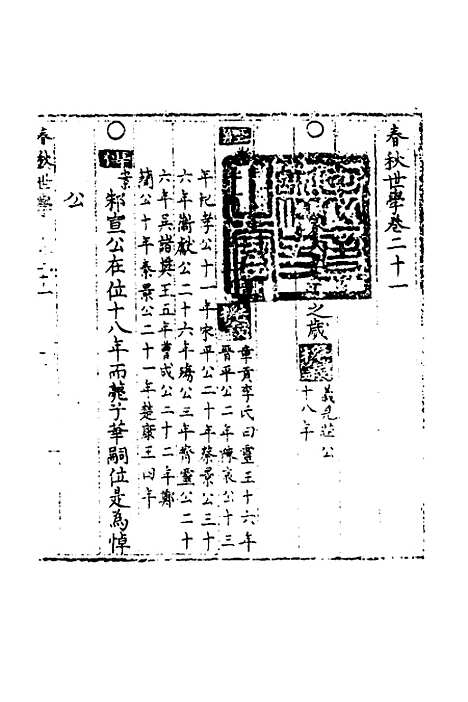 春秋世學卷二十一
之歲
義見莊公
十八年
章貢李氏曰靈王十六年
晉平公二年陳哀公十三
年杞孝公十一年宋平公二十年蔡景公三十
六年衞獻公二十六年殤公三年齊靈公二十
六年吳諸樊王五年曹成公二十二年鄭
簡公十年秦景公二十一年楚康王四年
傳
邾宣公在位十八年而薨子華嗣位是為悼
公
春秋世學